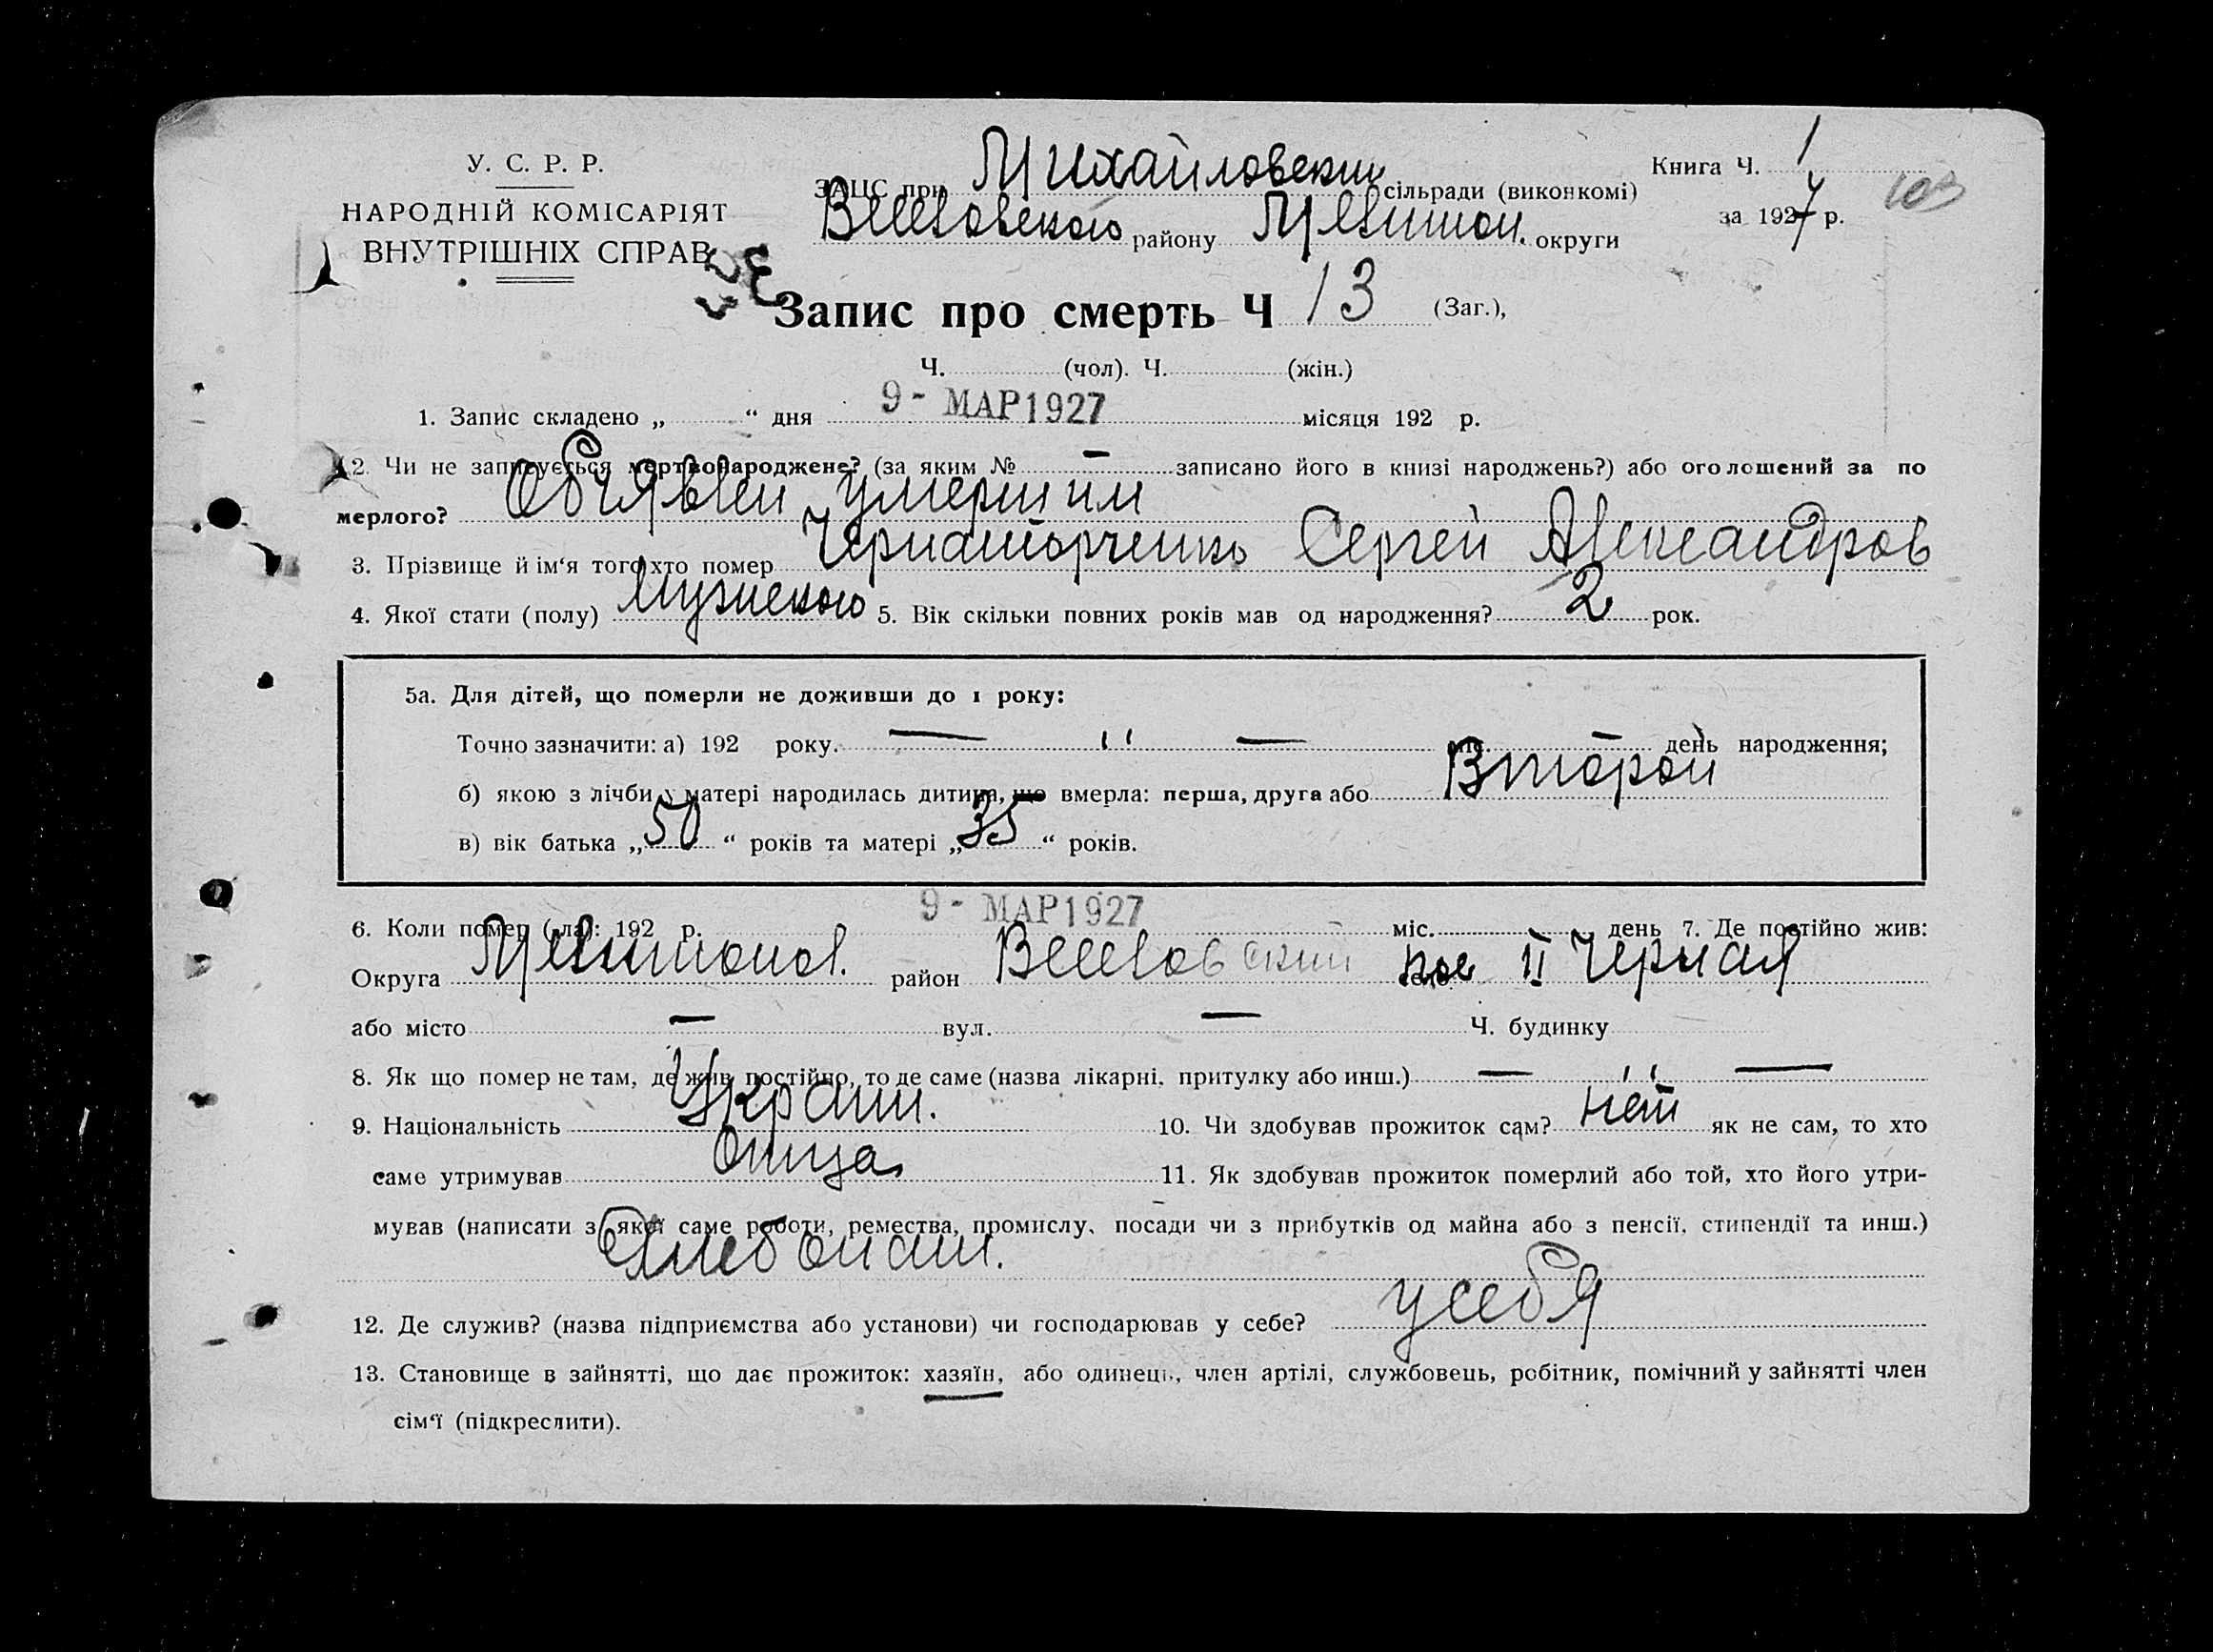 У. С. Р. Р.
НАРОДНІЙ КОМІСАРІЯТ
ВНУТРІШНІХ СПРАВ
ЗАЦС при Михайловский сільради (виконкомі)
району Мелитоп. округи
Книга Ч. 1
за 1927 р.
103
Запис про смерть Ч 13 (Заг.),
Ч. (чол). Ч. (жін.)
1. Запис складено „ “ дня 9 - МАР 1927 місяця 192 р.
2. Чи не записується мертвонароджене? (за яким № — записано його в книзі народжень?) або оголошений за по
мерлого? умершим
3. Прізвище й ім‘я того хто помер Сергей Александров
4. Якої стати (полу) мужского 5. Вік скільки повних років мав од народження? 2 рок.
5а. Для дітей, що померли не доживши до 1 року:
Точно зазначити: а) 192 року. — " — міс. — день народження;
б) якою з лічби у матері народилась дитина, що вмерла: перша, друга або Второй
в) вік батька „50“ років та матері „35“ років.
6. Коли помер (ла): 192 р. 9 - МАР 1927 міс. день 7. Де постійно жив:
Округа Мелитопол. район село пос II Черная
або місто — вул. — Ч. будинку
8. Як що помер не там, де жив постійно, то де саме (назва лікарні, притулку або инш.) — " —
9. Національність Украин. 10. Чи здобував прожиток сам? нет як не сам, то хто
саме утримував отца 11. Як здобував прожиток померлий або той, хто його утри-
мував (написати з якої саме роботи, ремества, промислу, посади чи з прибутків од майна або з пенсії, стипендії та инш.)
Хлебопаш.
12. Де служив? (назва підприємства або установи) чи господарював у себе? у себя
13. Становище в зайнятті, що дає прожиток: хазяїн, або одинець, член артілі, службовець, робітник, помічний у зайнятті член
сім‘ї (підкреслити).